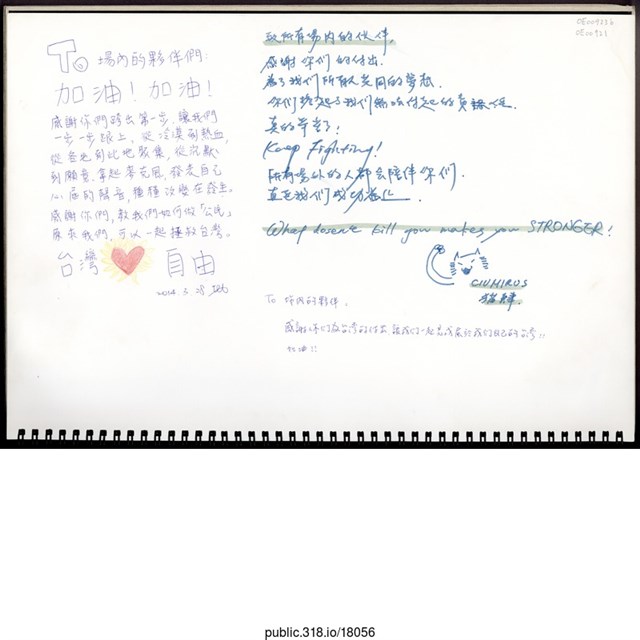 To 場內的夥伴們:
加油!加油!
感謝你們踏出第一步,讓我們
一步一步跟上,從冷漠到熱血,
從各地到此地聚集,從沉默
到願意拿起麥克風,發表自己
心底的聲音,種種改變在發生。
感謝你們,教我們如何做「公民」
原來我們,可以一起拯救台灣。
台灣 自由
2014.3.28
致所有場內的伙伴,
感謝你們的付出,
為了我們所有人共同的夢想,
你們擔起了我們
真的辛苦了!
Keep Fighting!
所有場外的人都會陪伴你們,
直至我們成功為止.
What dosen't kill you makes you STRONGER!
CIUHIRUS
To 場內的夥伴,
感謝你們為台灣的付出,讓我們一起完成屬於我們自己的台灣!!
加油!!
OE009236
OE00921
public.318.io/18056